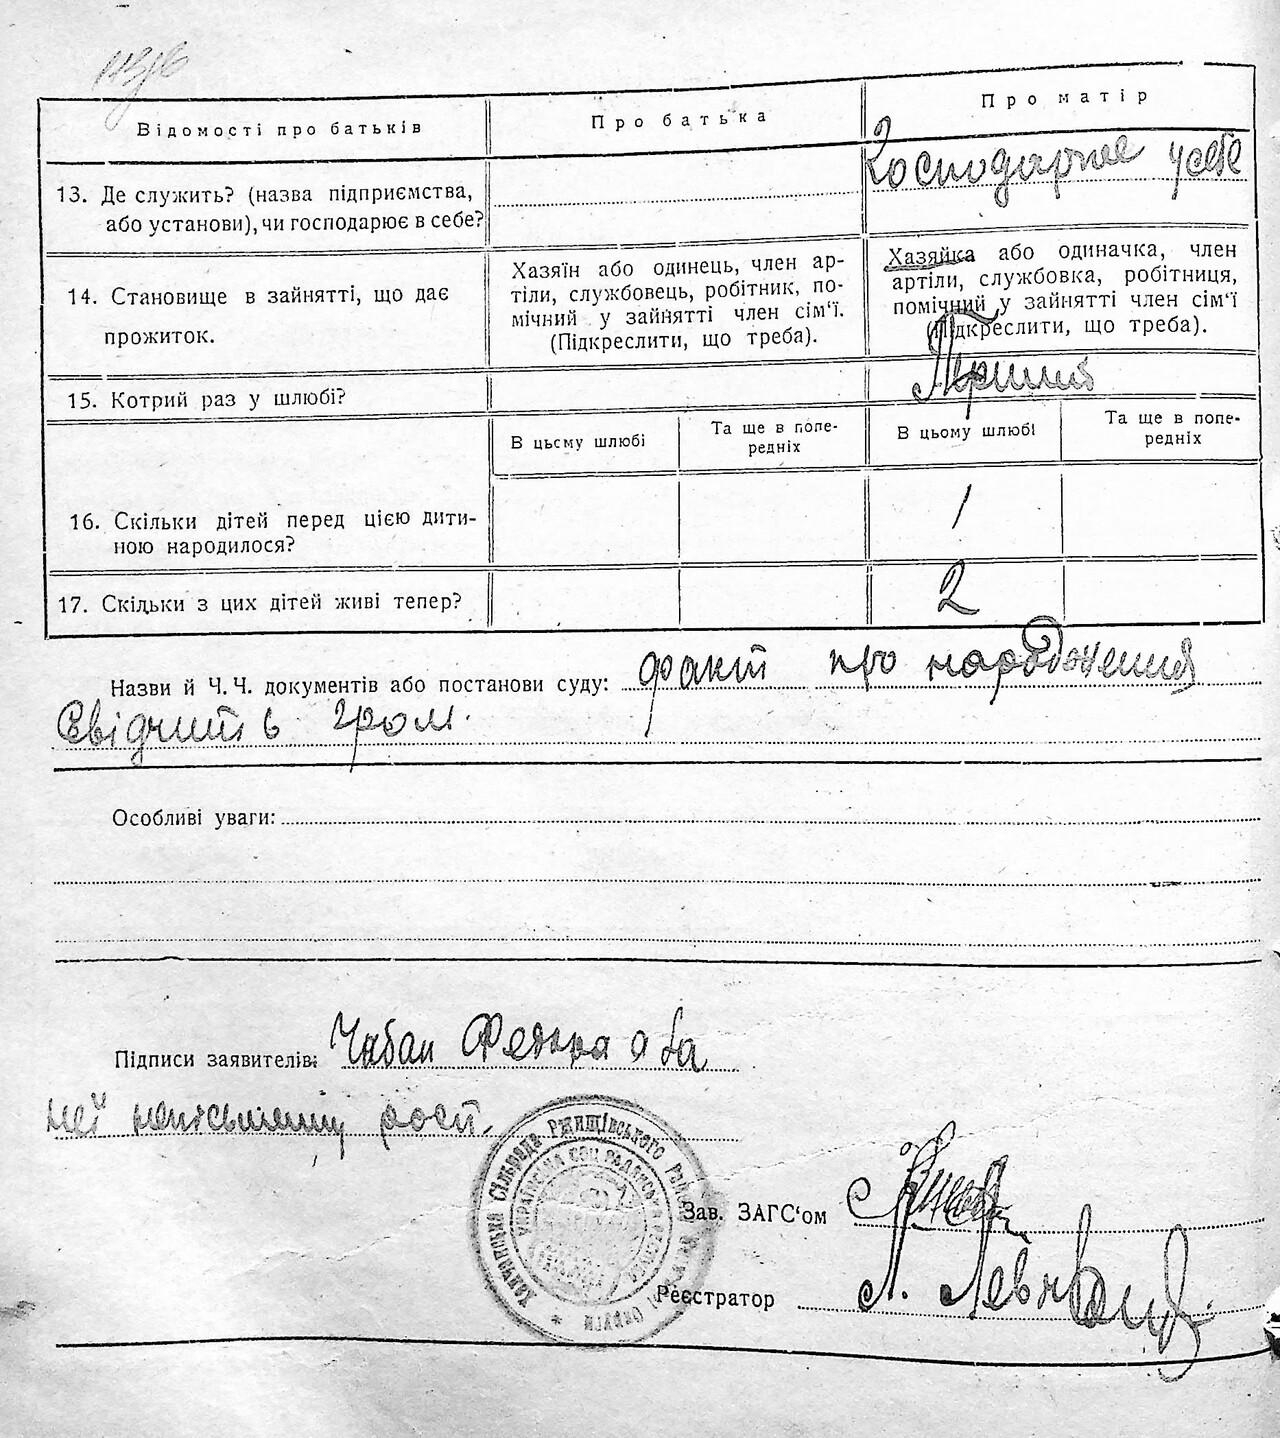 Відомості про батьків
Про батька
Про матір
13. Де служить? (назва підприємства, або установи), чи господарює в себе?
Господарює у себе
14. Становище в зайнятті, що дає прожиток.
Хазяїн або одинець, член ар-
тіли, службовець, робітник, по-
мічний у зайнятті член сім‘ї.
(Підкреслити, що треба).
Хазяйка або одиначка, член
артіли, службовка, робітниця,
помічний у зайнятті член сім‘ї
(Підкреслити, що треба).
15. Котрий раз у шлюбі?
Перший
В цьсму шлюбі
Та ще в попе-
редніх
В цьому шлюбі
Та ще в попе-
редніх
16. Скільки дітей перед цією дити-
ною народилося?
1
17. Скільки з цих дітей живі тепер?
2
Назви й Ч. Ч. документів або постанови суду: факт про народження
Свідчить гром.
Особливі уваги:
Підписи заявителів: Чабан Федора а за
неї неписьмену розп.
сільрада Ржищівського Району
Округи
Зав. ЗАГС‘ом
Реєстратор Л.